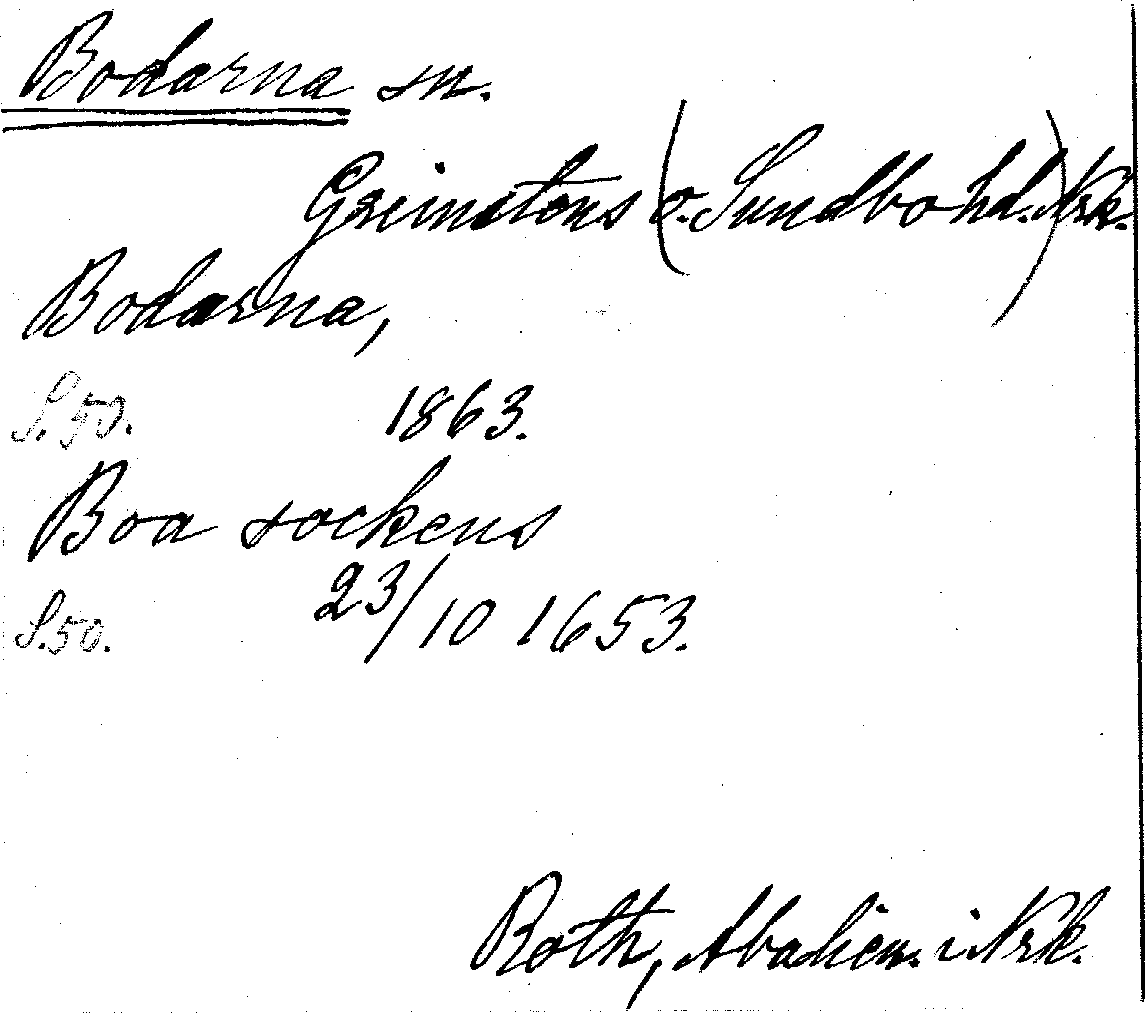 Bodarna sn.
Grimstens (o. Sundbo hd.) Nrk.
Bodarna,
S. 50. 1863.
Boa sockens
S. 50. 23/10 1653.
Roth, Abalien. i Nrk.